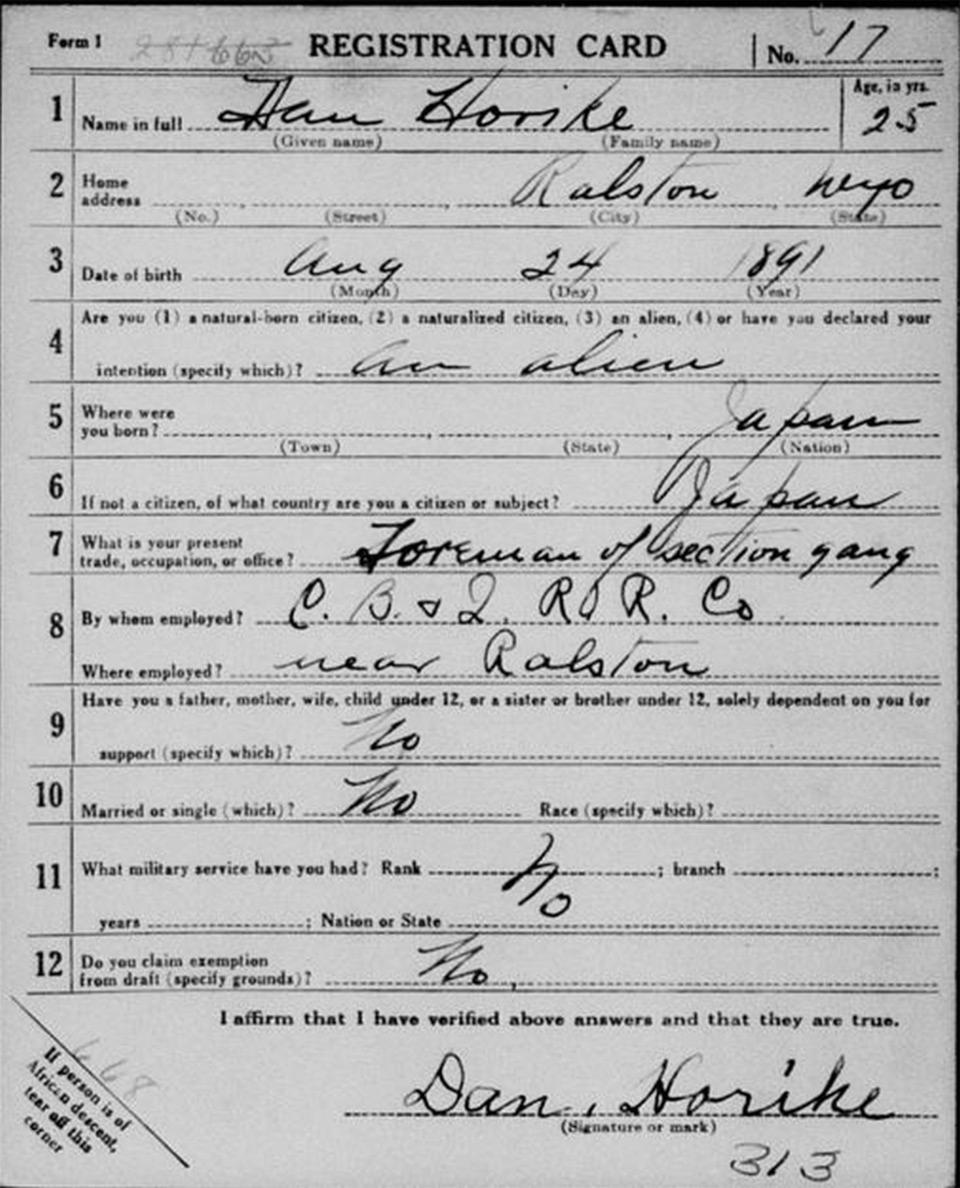 Form 1 REGISTRATION CARD No. 17
1 Name in full Dan Horike Age, in yrs. 25
(Given name) (Family name)
2 Home address Ralston Wyo
(No.) (Street) (City) (State)
3 Date of birth Aug 24 1891
(Month) (Day) (Year)
4 Are you (1) a natural-born citizen, (2) a naturalized citizen, (3) an alien, (4) or have you declared your
intention (specify which)? An alien
5 Where were you born? Japan
(Town) (State) (Nation)
6 If not a citizen, of what country are you a citizen or subject? Japan
7 What is your present trade, occupation, or office? Foreman of section gang
8 By whom employed? C. B. & Q. R. R. Co
Where employed? near Ralston
9 Have you a father, mother, wife, child under 12, or a sister or brother under 12, solely dependent on you for
support (specify which)? No
10 Married or single (which)? No Race (specify which)?
11 What military service have you had? Rank No ; branch ;
years ; Nation or State
12 Do you claim exemption from draft (specify grounds)? No
I affirm that I have verified above answers and that they are true.
If person is of
African descent,
tear off this
corner
668
Dan. Horike
(Signature or mark)
313